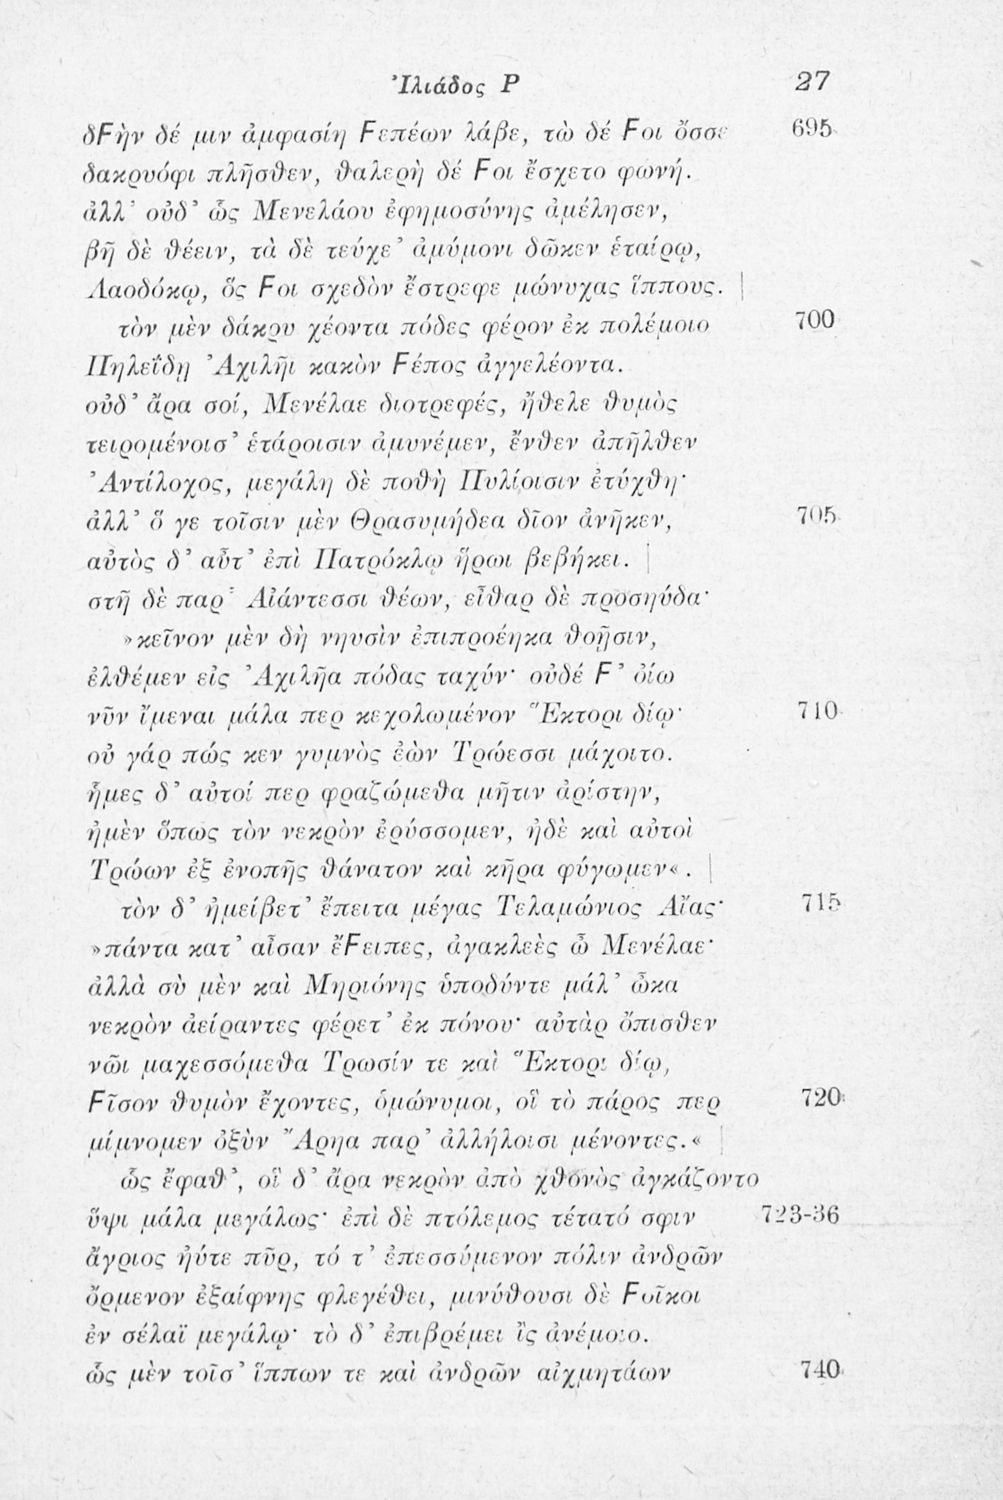 Ἰλιάδος Ρ 27
δϜὴν δέ μιν ἀμφασίη Ϝεπέων λάβε, τὼ δέ Ϝοι ὄσσε 695
δακρυόφι πλῆσθεν, θαλερὴ δέ Ϝοι ἔσχετο φωνή.
ἀλλ᾽ οὐδ᾽ ὧς Μενελάου ἐφημοσύνης ἀμέλησεν,
βῆ δὲ θέειν, τὰ δὲ τεύχε᾽ ἀμύμονι δῶκεν ἑταίρῳ,
Λαοδόκῳ, ὅς Ϝοι σχεδὸν ἔστρεφε μώνυχας ἵππους. |
τὸν μὲν δάκρυ χέοντα πόδες φέρον ἐκ πολέμοιο 700
Πηλεΐδῃ Ἀχιλῆι κακὸν Ϝέπος ἀγγελέοντα.
οὐδ᾽ ἄρα σοί, Μενέλαε διοτρεφές, ἤθελε θυμὸς
τειρομένοισ᾽ ἑτάροισιν ἀμυνέμεν, ἔνθεν ἀπῆλθεν
Ἀντίλοχος, μεγάλη δὲ ποθὴ Πυλίοισιν ἐτύχθη·
ἀλλ᾽ ὅ γε τοῖσιν μὲν Θρασυμήδεα δῖον ἀνῆκεν, 705
αὐτὸς δ᾽ αὖτ᾽ ἐπὶ Πατρόκλῳ ἥρωι βεβήκει. |
στῆ δὲ παρ᾽ Αἰάντεσσι θέων, εἶθαρ δὲ προσηύδα·
»κεῖνον μὲν δὴ νηυσὶν ἐπιπροέηκα θοῇσιν,
ἐλθέμεν εἰς Ἀχιλῆα πόδας ταχύν· οὐδέ Ϝ᾽ ὀίω
νῦν ἴμεναι μάλα περ κεχολωμένον Ἕκτορι δίῳ· 710
οὐ γάρ πώς κεν γυμνὸς ἐὼν Τρώεσσι μάχοιτο.
ἧμες δ᾽ αὐτοί περ φραζώμεθα μῆτιν ἀρίστην,
ἠμὲν ὅπως τὸν νεκρὸν ἐρύσσομεν, ἠδὲ καὶ αὐτοὶ
Τρώων ἐξ ἐνοπῆς θάνατον καὶ κῆρα φύγωμεν«. |
τὸν δ᾽ ἠμείβετ᾽ ἔπειτα μέγας Τελαμώνιος Αἴας· 715
»πάντα κατ᾽ αἶσαν ἔϜειπες, ἀγακλεὲς ὦ Μενέλαε·
ἀλλὰ σὺ μὲν καὶ Μηριόνης ὑποδύντε μάλ᾽ ὦκα
νεκρὸν ἀείραντες φέρετ᾽ ἐκ πόνου· αὐτὰρ ὄπισθεν
νῶι μαχεσσόμεθα Τρωσίν τε καὶ Ἕκτορι δίῳ,
Ϝῖσον θυμὸν ἔχοντες, ὁμώνυμοι, οἳ τὸ πάρος περ 720
μίμνομεν ὀξὺν Ἄρηα παρ᾽ ἀλλήλοισι μένοντες.« |
ὧς ἔφαθ᾽, οἳ δ᾽ ἄρα νεκρὸν ἀπὸ χθονὸς ἀγκάζοντο
ὕψι μάλα μεγάλως· ἐπὶ δὲ πτόλεμος τέτατό σφιν 723-36
ἄγριος ἠύτε πῦρ, τό τ᾽ ἐπεσσύμενον πόλιν ἀνδρῶν
ὄρμενον ἐξαίφνης φλεγέθει, μινύθουσι δὲ Ϝοῖκοι
ἐν σέλαϊ μεγάλῳ· τὸ δ᾽ ἐπιβρέμει ἲς ἀνέμοιο.
ὧς μὲν τοῖσ᾽ ἵππων τε καὶ ἀνδρῶν αἰχμητάων 740